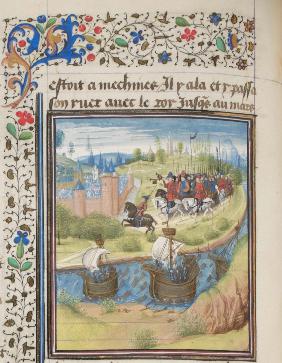 estoit a mechines Il y ala et passa
son ruct auec le roy Jusqe au mare